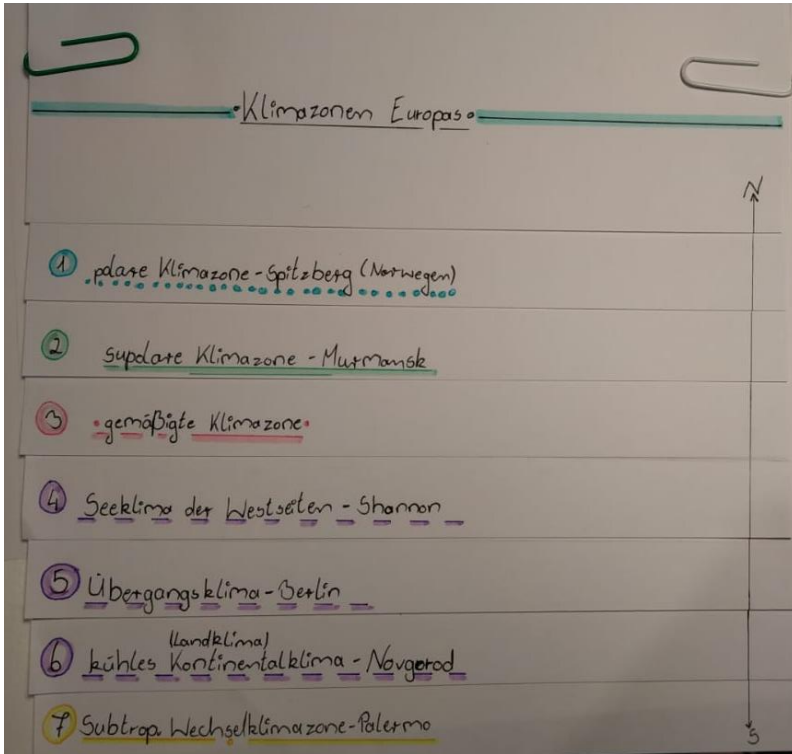 •Klimazonen Europas•
N
① polare Klimazone - Spitzberg (Norwegen)
② supolare Klimazone - Murmansk
③ •gemäßigte Klimazone•
④ Seeklima der Westseiten - Shannon
⑤ Übergangsklima - Berlin
(Landklima)
⑥ kühles Kontinentalklima - Novgorod
⑦ Subtrop. Wechselklimazone - Palermo
S